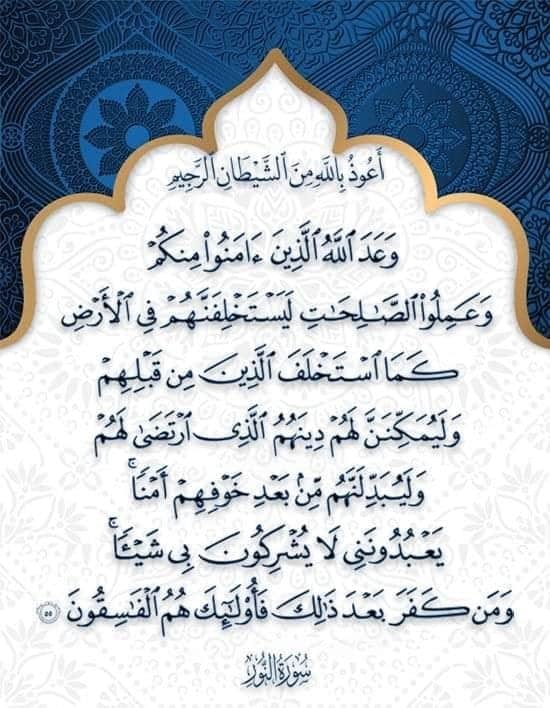 أَعُوذُ بِاللَّهِ مِنَ ٱلشَّيْطَانِ ٱلرَّجِيمِ
وَعَدَ ٱللَّهُ ٱلَّذِينَ ءَامَنُوا۟ مِنكُمْ
وَعَمِلُوا۟ ٱلصَّـٰلِحَـٰتِ لَيَسْتَخْلِفَنَّهُمْ فِى ٱلْأَرْضِ
كَمَا ٱسْتَخْلَفَ ٱلَّذِينَ مِن قَبْلِهِمْ
وَلَيُمَكِّنَنَّ لَهُمْ دِينَهُمُ ٱلَّذِى ٱرْتَضَىٰ لَهُمْ
وَلَيُبَدِّلَنَّهُم مِّنۢ بَعْدِ خَوْفِهِمْ أَمْنًا ۚ
يَعْبُدُونَنِى لَا يُشْرِكُونَ بِى شَيْـًٔا ۚ
وَمَن كَفَرَ بَعْدَ ذَٰلِكَ فَأُو۟لَـٰٓئِكَ هُمُ ٱلْفَـٰسِقُونَ ٥٥
سُورَةُ النُّورِ